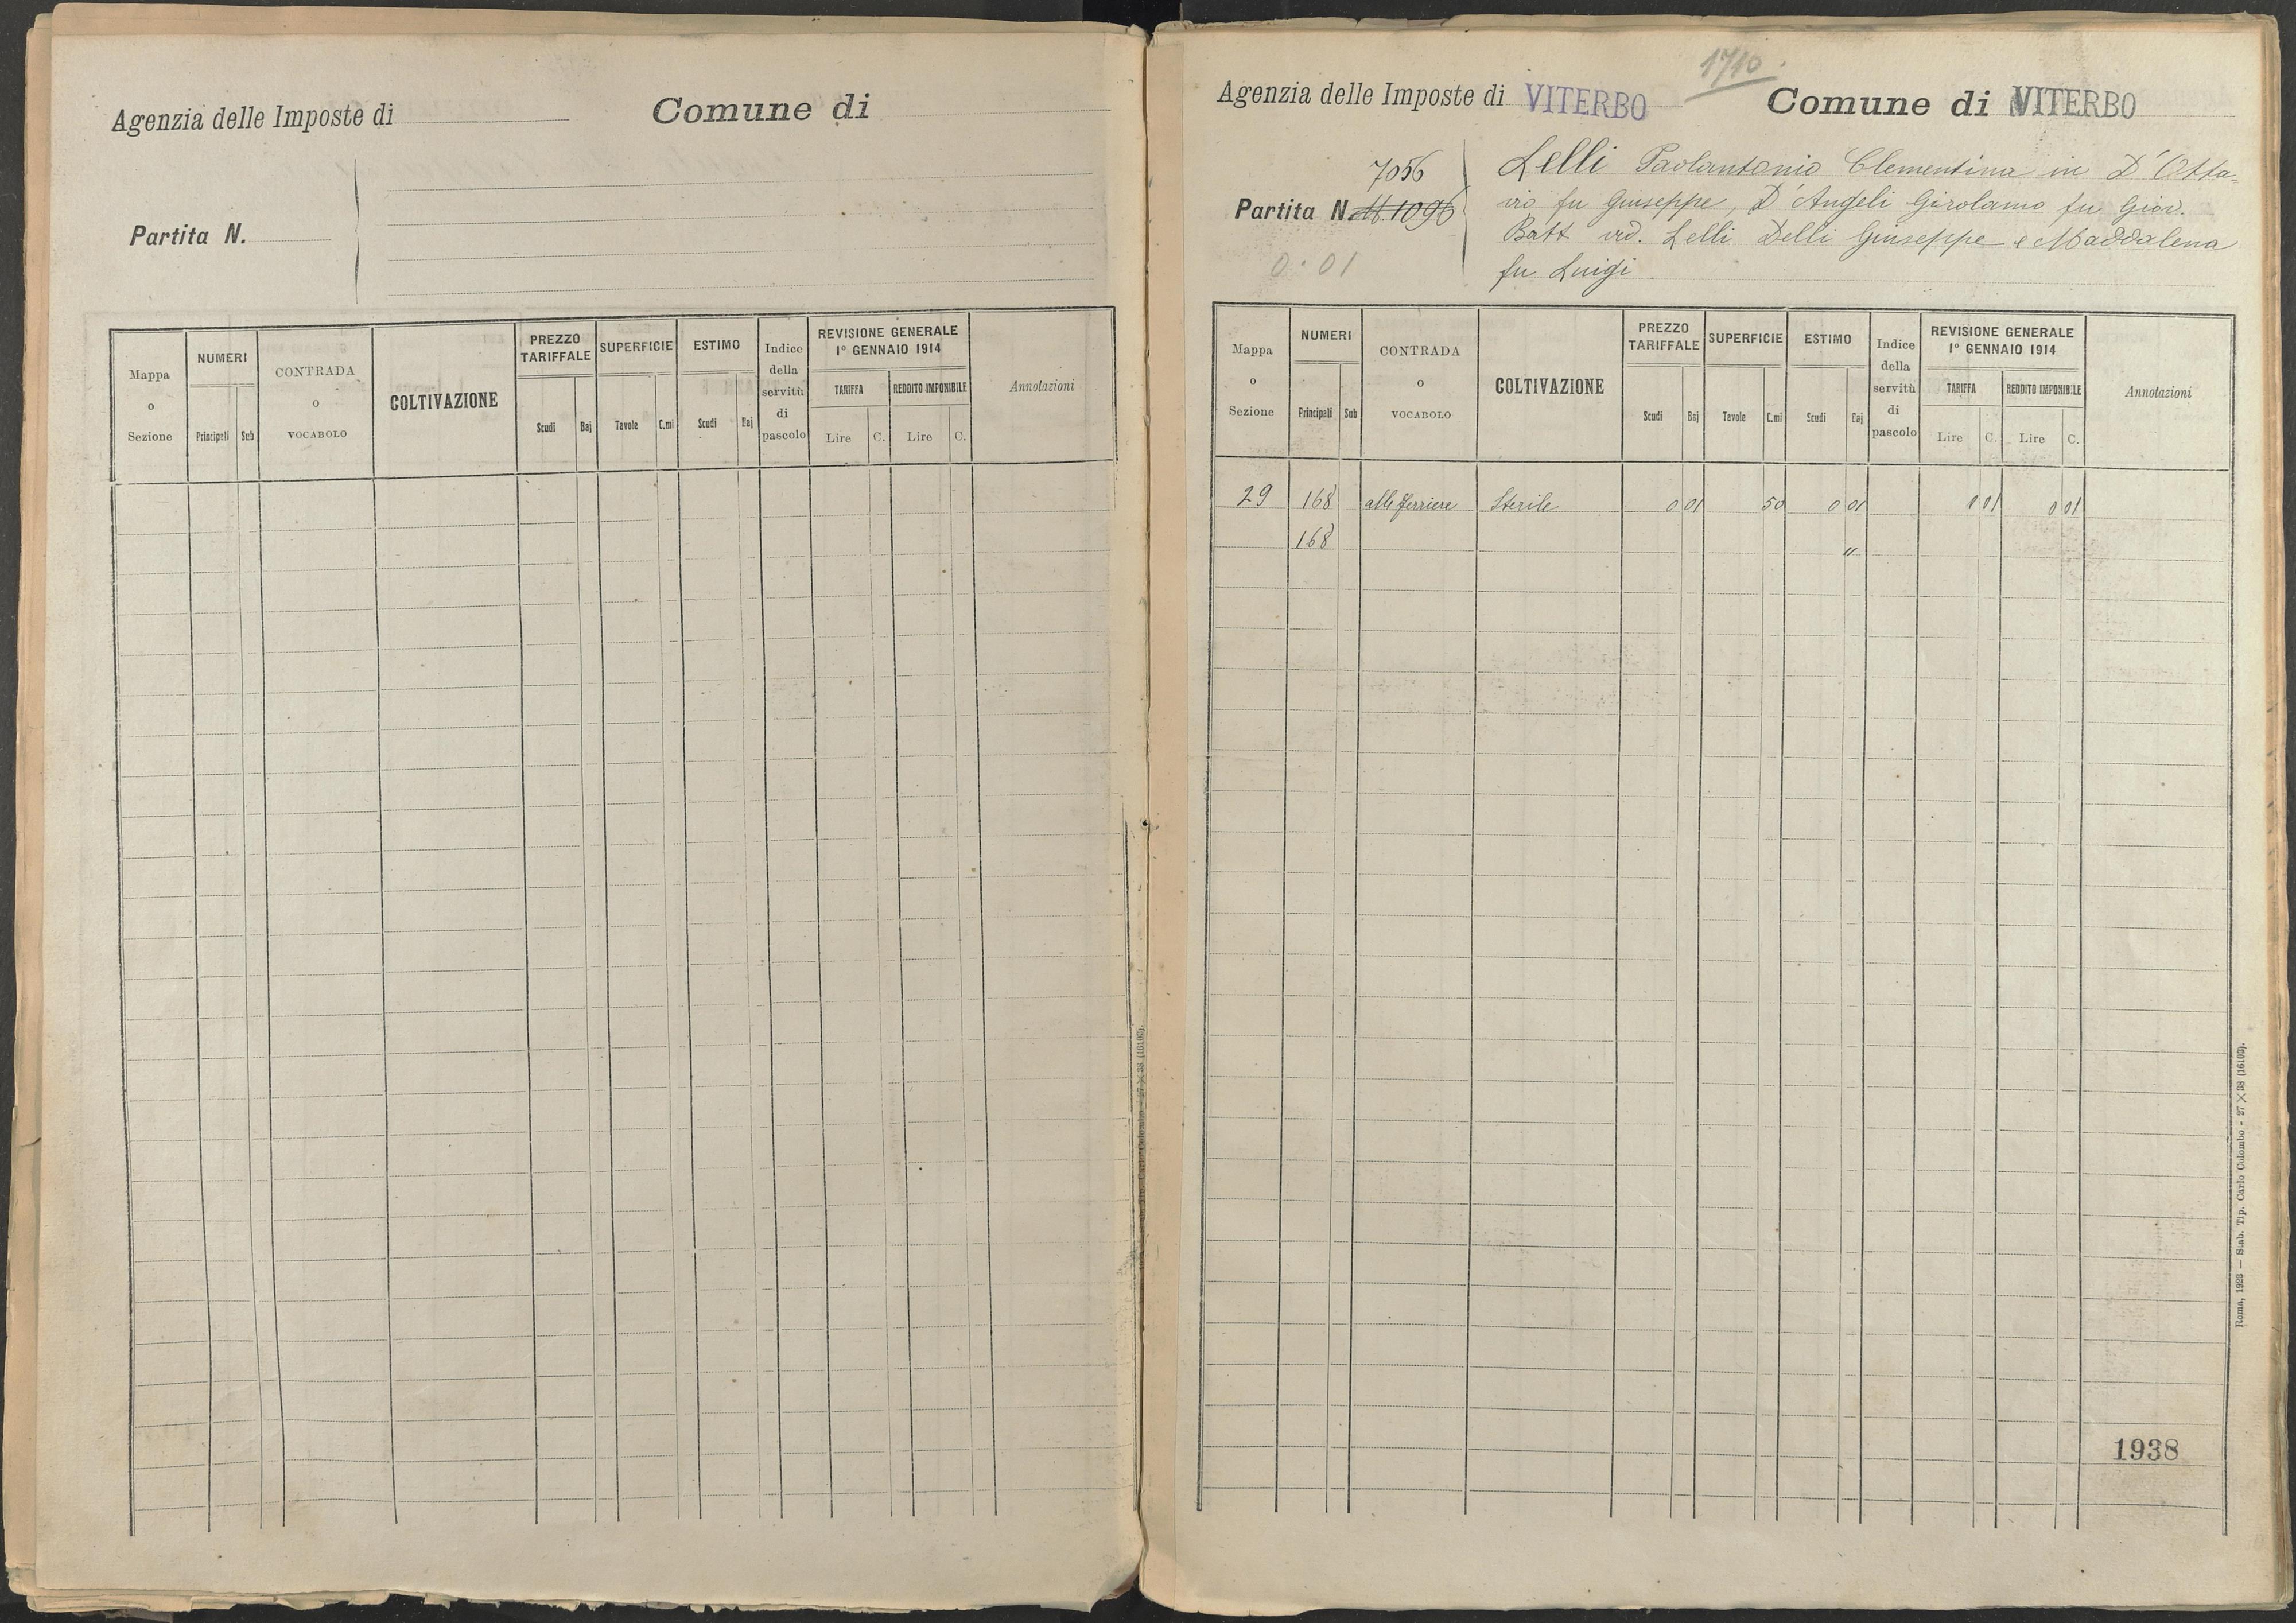 Agenzia delle Imposte di
Comune di
Partita N.
Mappa o Sezione
NUMERI
Principali Sub
CONTRADA o VOCABOLO
COLTIVAZIONE
PREZZO TARIFFALE
Scudi Baj
SUPERFICIE
Tavole C.mi
ESTIMO
Scudi Baj
Indice della servitù di pascolo
REVISIONE GENERALE
1° GENNAIO 1914
TARIFFA
Lire C.
REDDITO IMPONIBILE
Lire C.
Annotazioni
27 X 38 (16103).
1710
Agenzia delle Imposte di VITERBO
Comune di VITERBO
7056
Partita N. 1096
0.01
Lelli Paolantonio Clementina in D'Otta=
vio fu Giuseppe, D'Angeli Girolamo fu Giov.
Batt. vd. Lelli Delli Giuseppe e Maddalena
fu Luigi
Mappa o Sezione
NUMERI
Principali Sub
CONTRADA o VOCABOLO
COLTIVAZIONE
PREZZO TARIFFALE
Scudi Baj
SUPERFICIE
Tavole C.mi
ESTIMO
Scudi Baj
Indice della servitù di pascolo
REVISIONE GENERALE
1° GENNAIO 1914
TARIFFA
Lire C.
REDDITO IMPONIBILE
Lire C.
Annotazioni
29 168 alle ferriere Sterile 0 01 50 0 01 0 01 0 01
168 "
1938
Roma, 1923 — Stab. Tip. Carlo Colombo - 27 X 38 (16103).